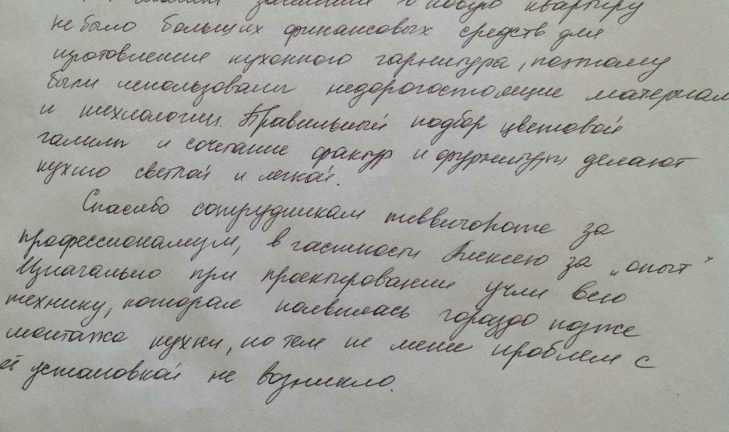 в новую квартиру
не было больших финансовых средств для
изготовления кухонного гарнитура, поэтому
были использованы недорогостоящие материал
и технологии. Правильный подбор цветовой
гаммы и сочетание фактур и фурнитуры делают
кухню светлой и легкой.
Спасибо сотрудникам за
профессионализм, в частности Алексею за „опыт"
Изначально при проектировании учли всю
технику, которая появилась гораздо позже
монтажа кухни, но тем не мене проблем с
её установкой не возникло.